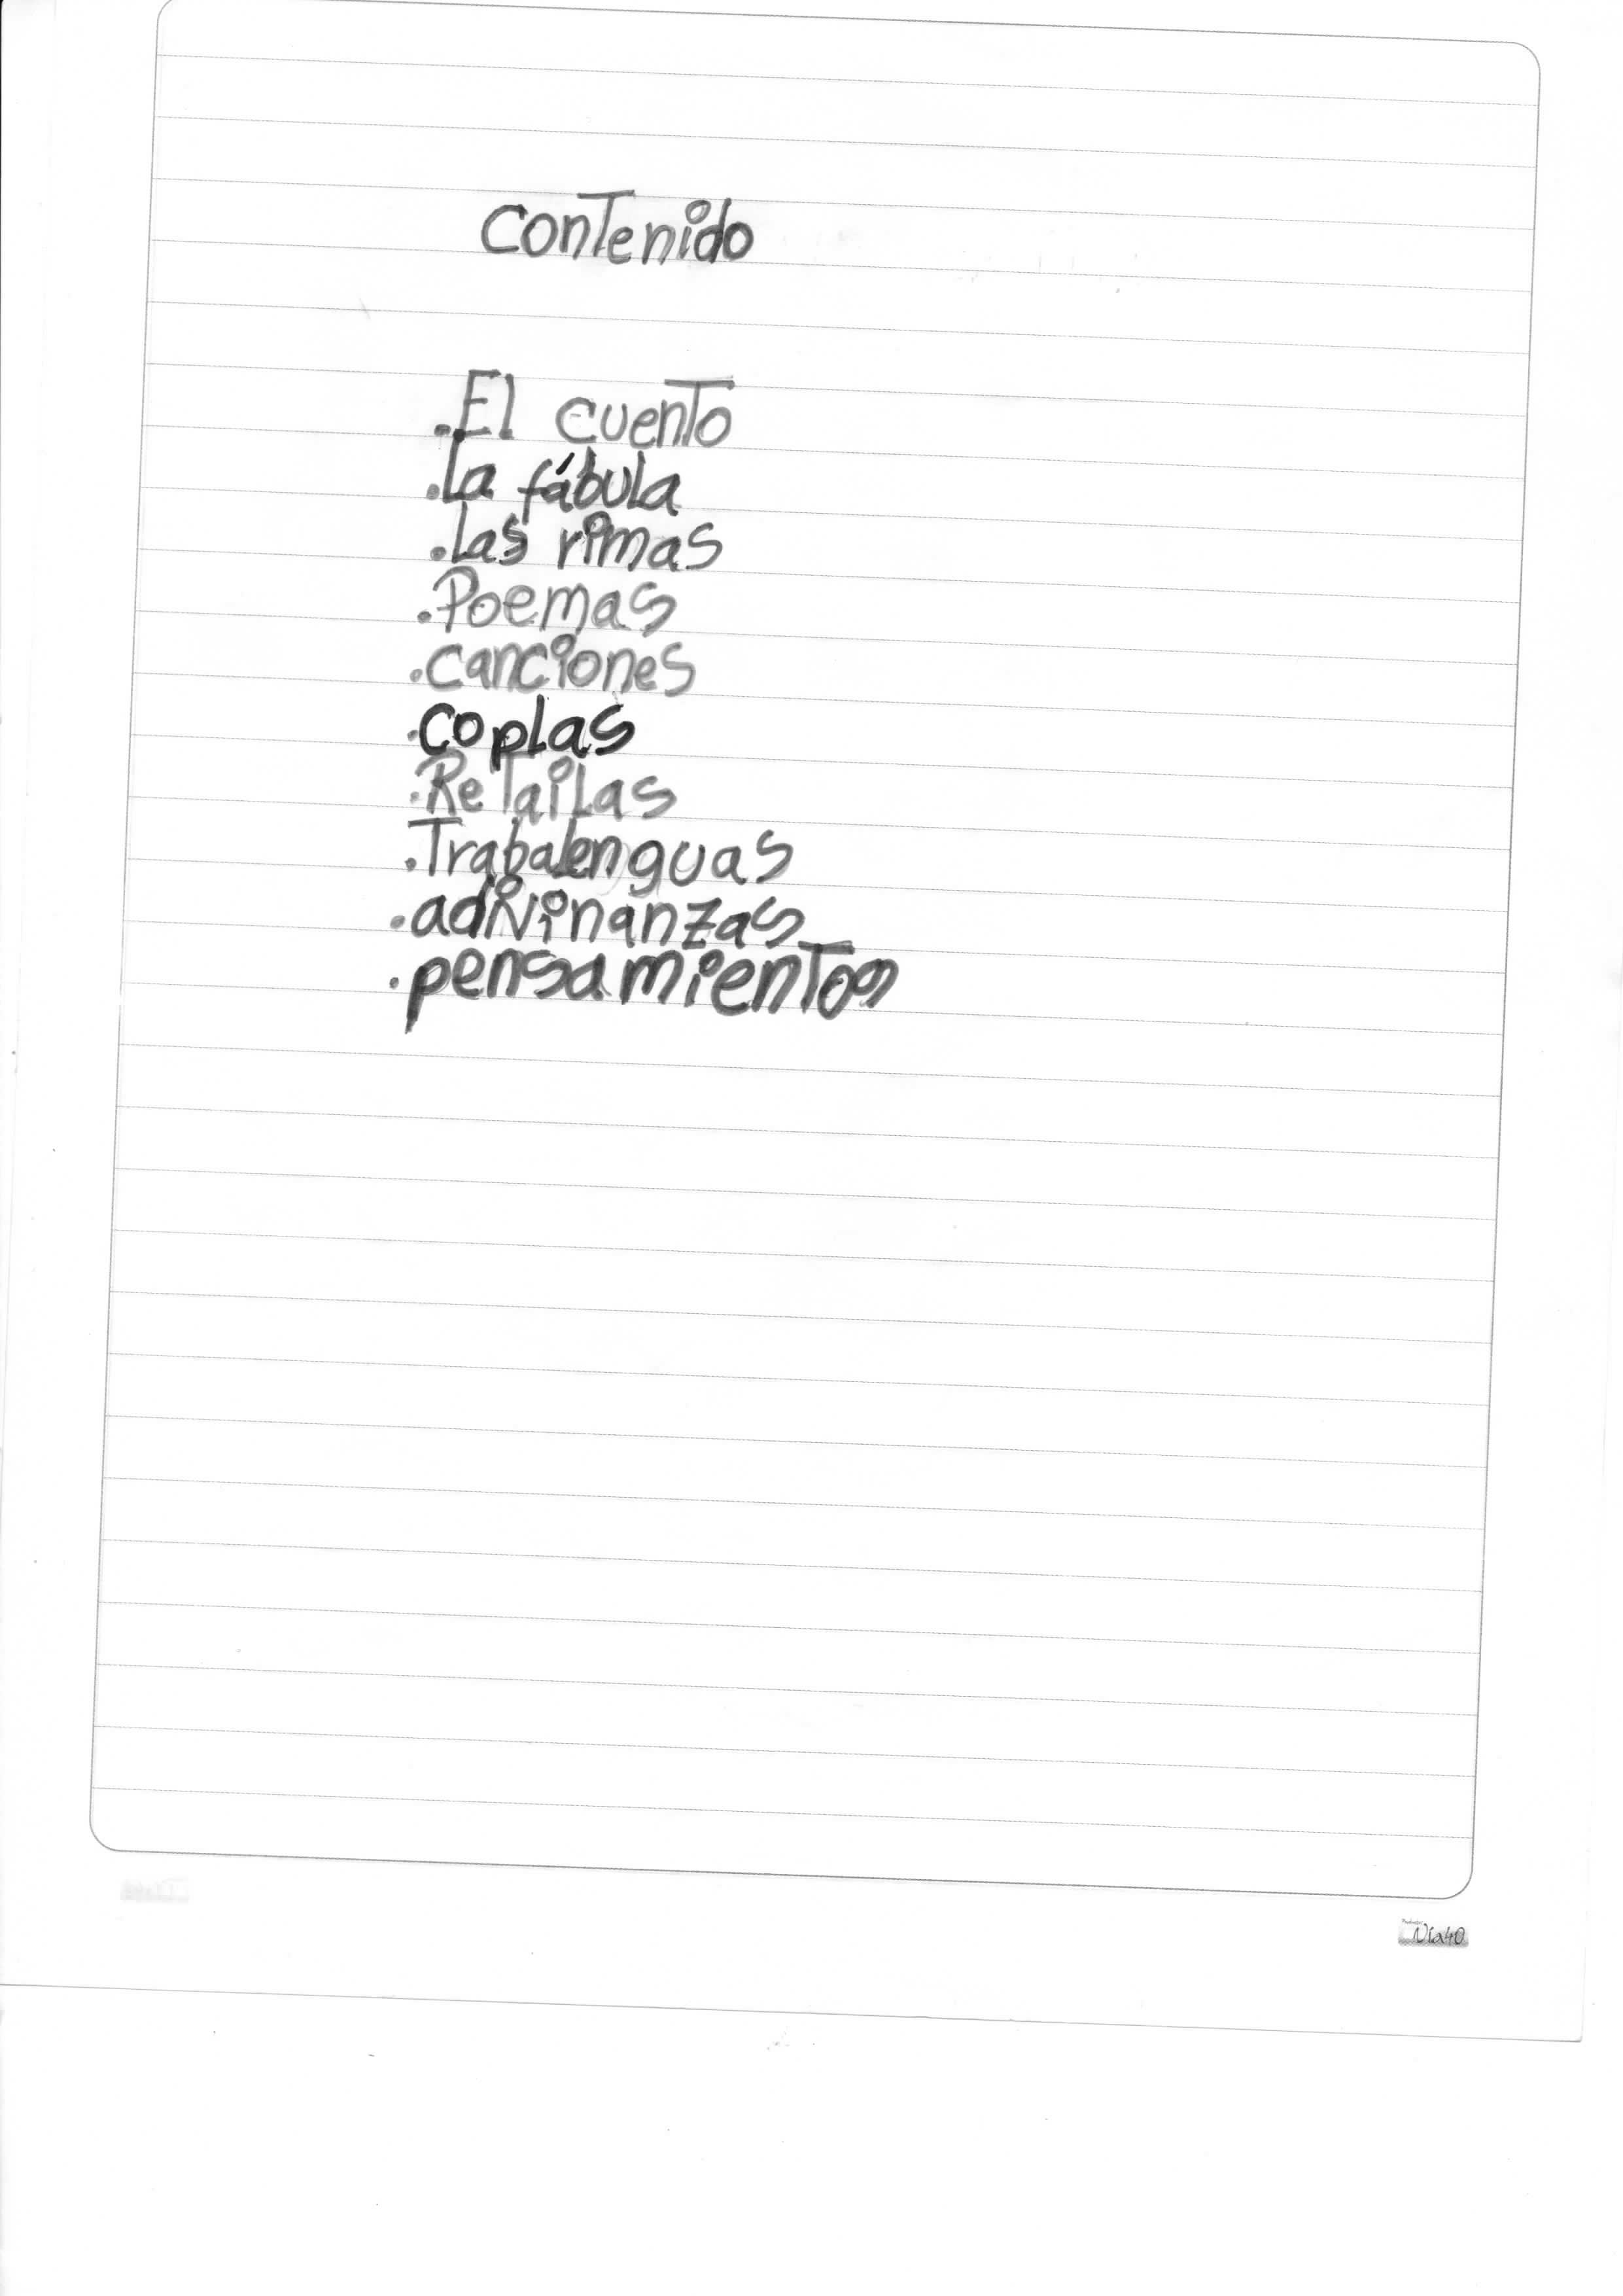 contenido
.El cuento
.La fábula
.las rimas
.Poemas
.canciones
.coplas
.Retailas
.Trabalenguas
.adivinanzas
.pensamientos